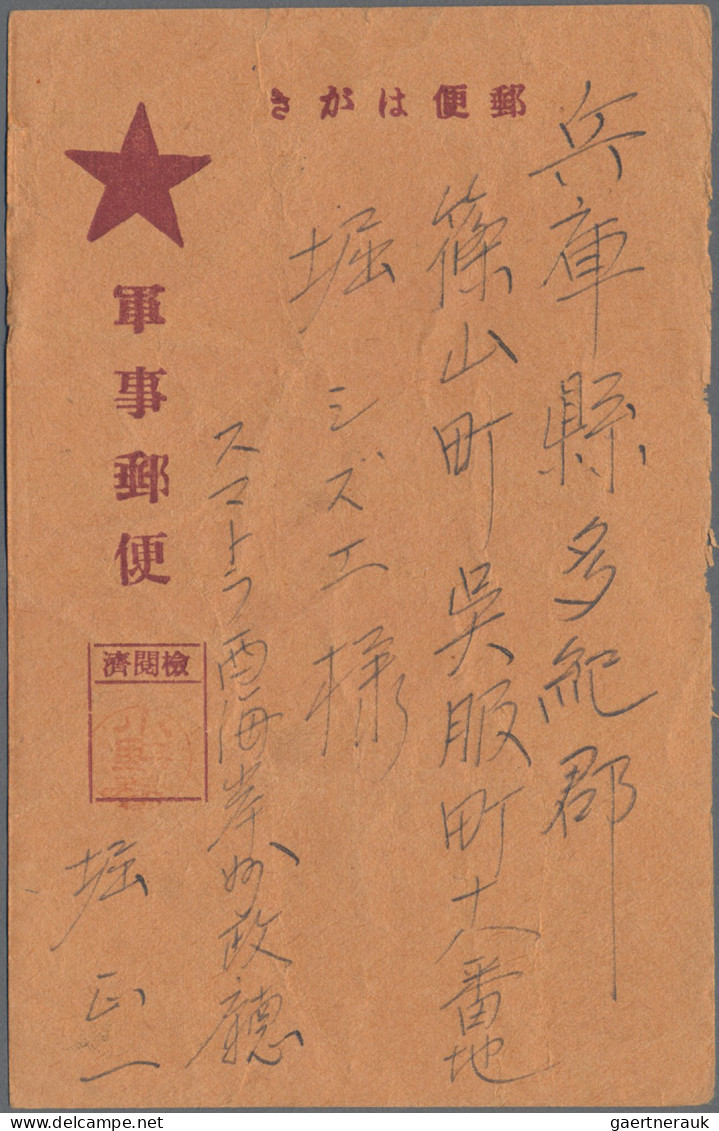 郵便はがき
兵庫縣多紀郡
篠山町呉服町十八番地
堀シズエ様
スマトラ西海岸州政廳
堀正一
軍事郵便
檢閲濟
gaertnerauk